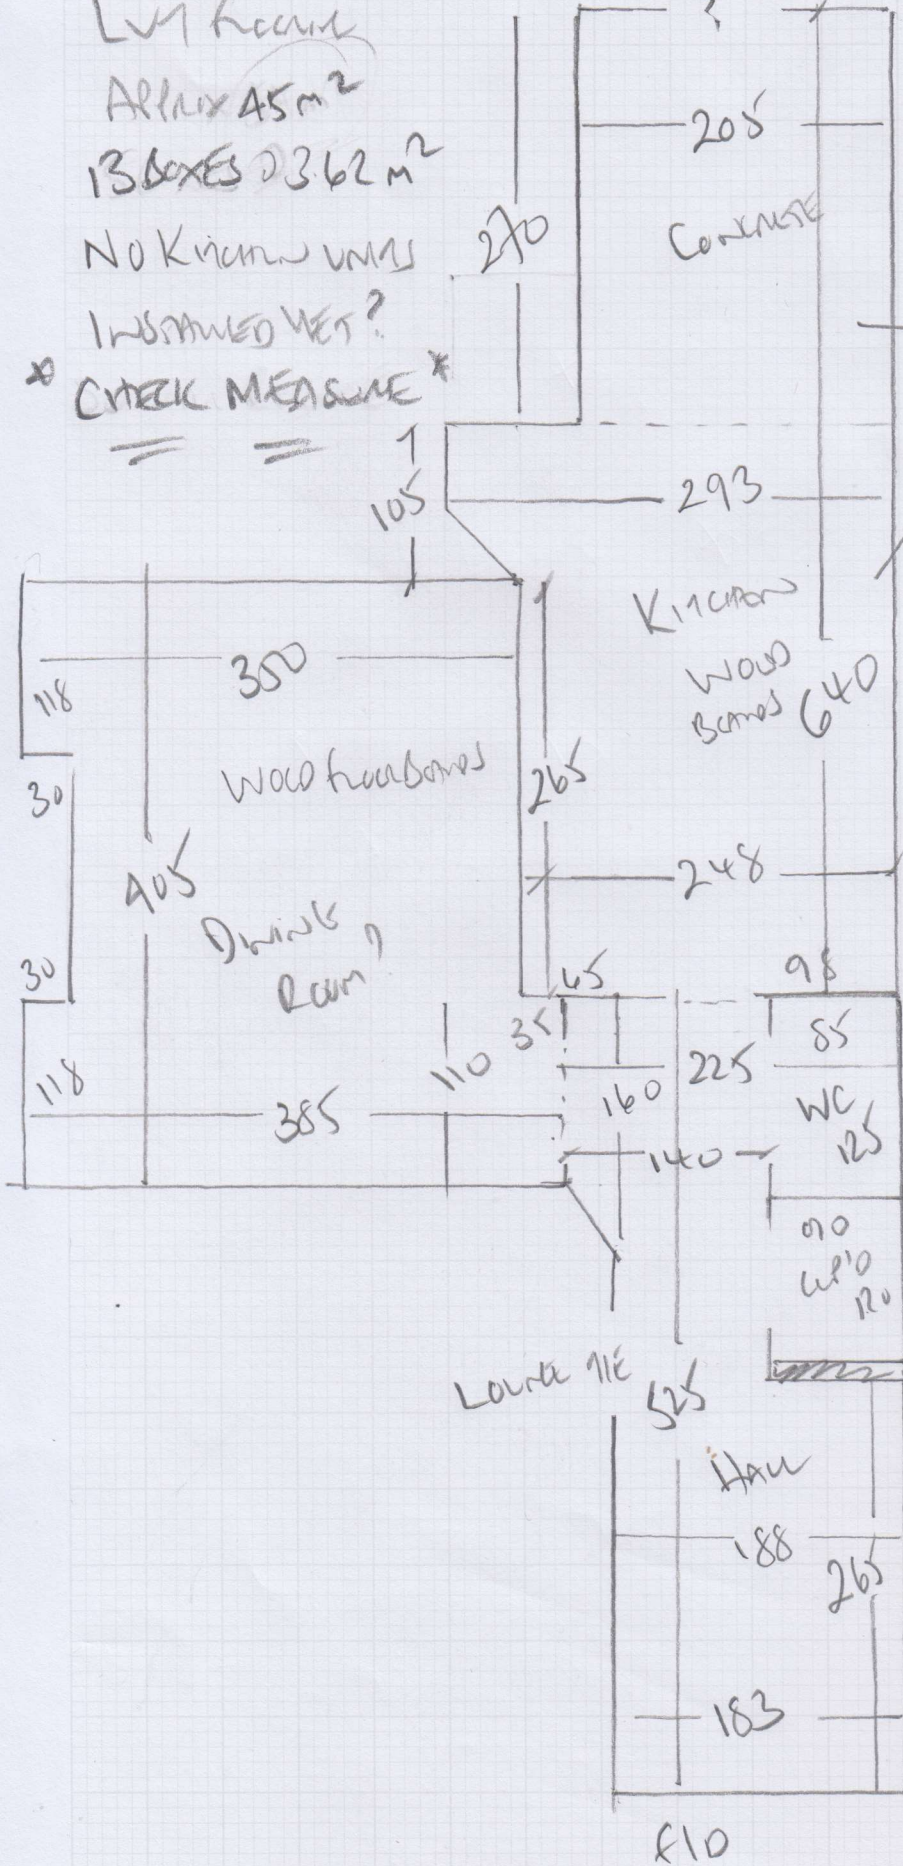 LVT FLOORING
APPROX 45m²
13 BOXES @ 3.62 m²
NO KITCHEN UNITS
INSTALLED YET?
* CHECK MEASURE *
205
270
CONCRETE
105
293
KITCHEN
WOOD
BOARDS
640
350
118
WOOD FLOORBOARDS
265
30
405
248
DINING
ROOM
30
45
98
35
85
118
110
225
160
WC
385
140
125
90
CP'D
120
LOUNGE
525
HALL
188
265
183
F/D